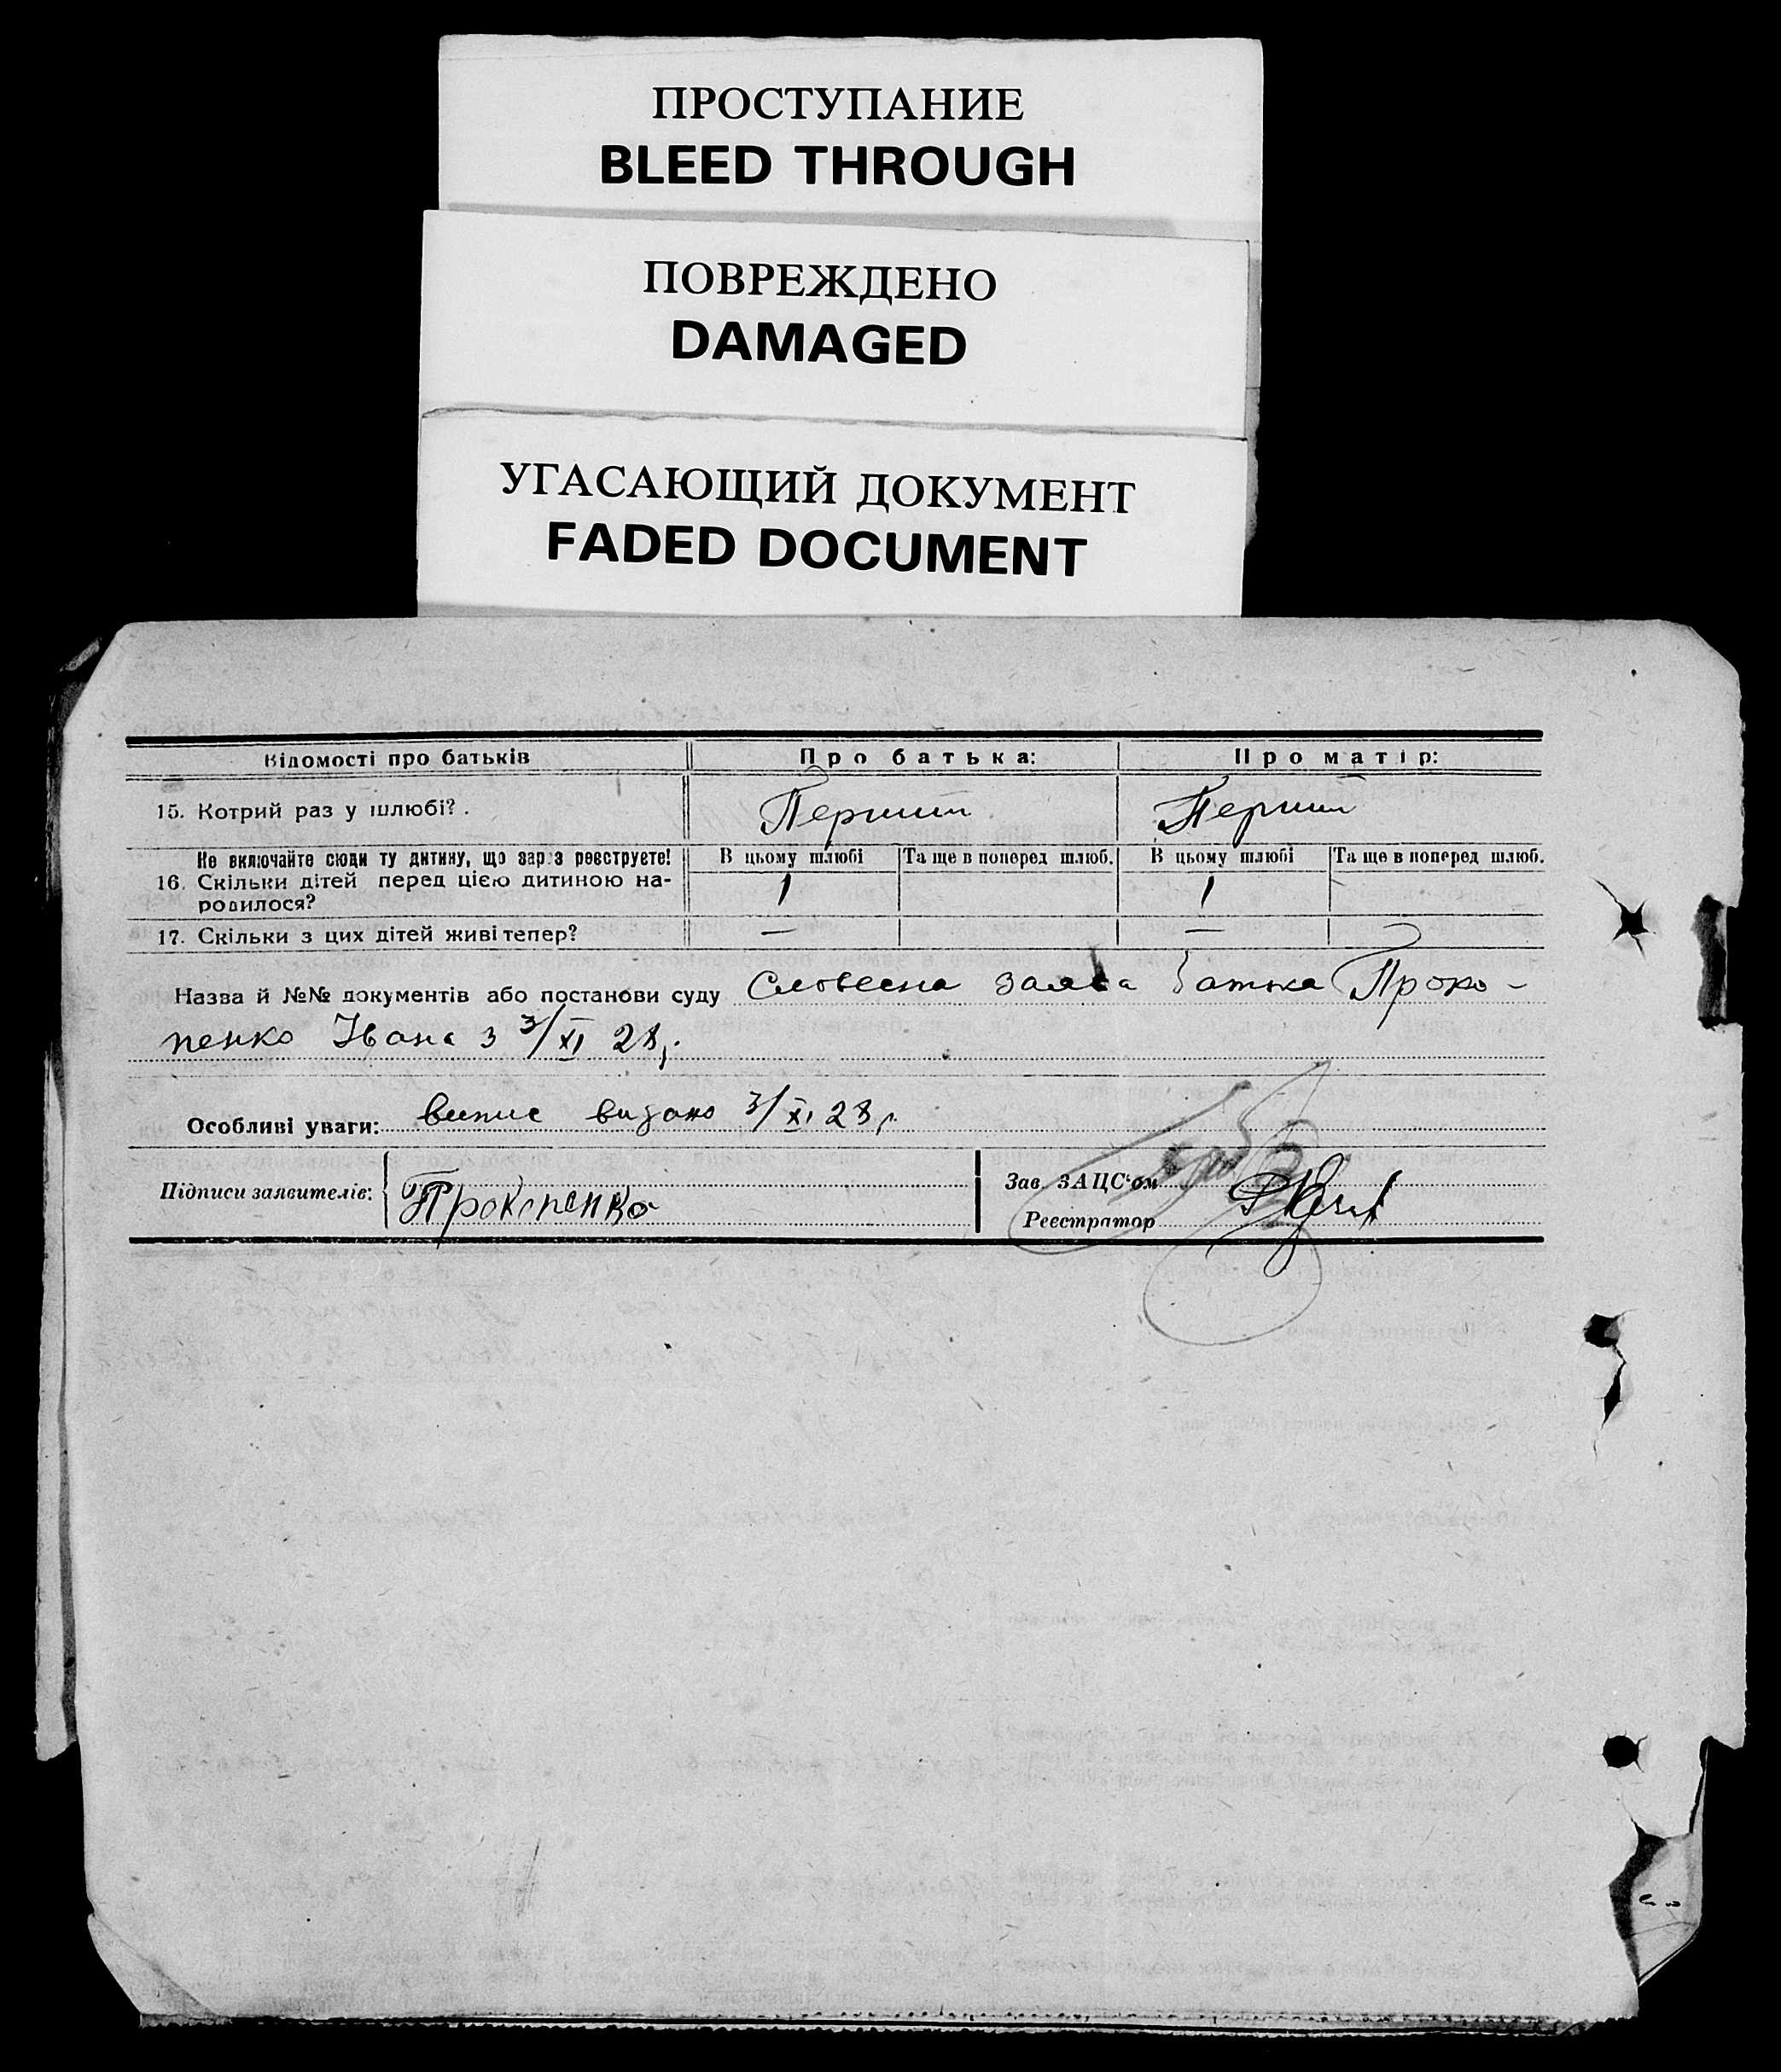 ПРОСТУПАНИЕ
BLEED THROUGH
ПОВРЕЖДЕНО
DAMAGED
УГАСАЮЩИЙ ДОКУМЕНТ
FADED DOCUMENT
Відомості про батьків Про батька: Про матір:
15. Котрий раз у шлюбі? . Перший Перший
Не включайте сюди ту дитину, що зараз реєструєте! В цьому шлюбі Та ще в поперед шлюб. В цьому шлюбі Та ще в поперед шлюб.
16. Скільки дітей перед цією дитиною на- 1 1
родилося?
17. Скільки з цих дітей живі тепер? — —
Назва й №№ документів або постанови суду Словесна заява батька Проко-
пенко Івана з 3/XI 28р.
Особливі уваги: випис видано 3/XI 28р.
Підписи заявителів: Прокопенко
Зав. ЗАЦС'ом
Реєстратор